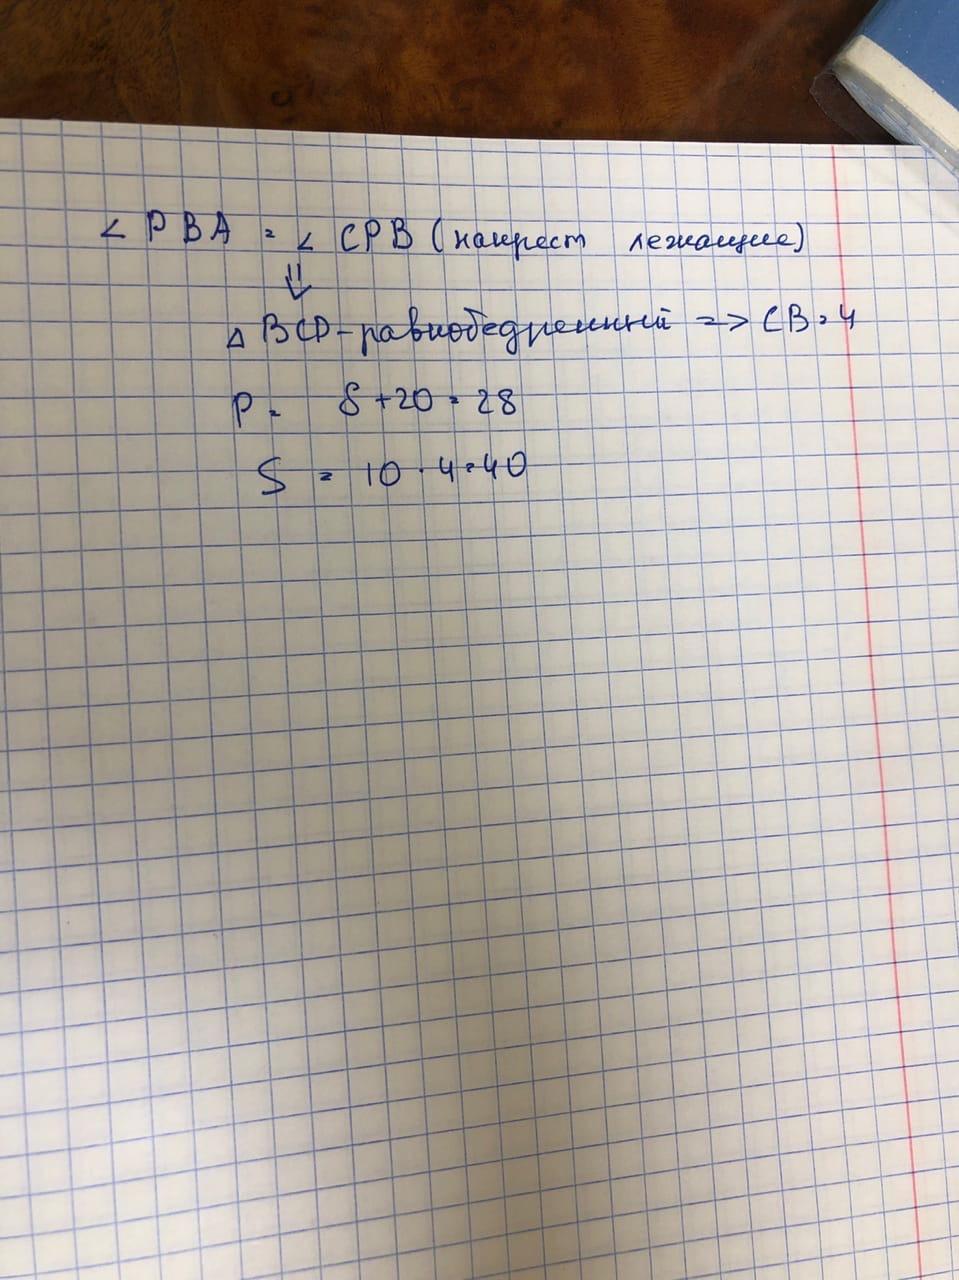 ∠ PBA = ∠ CPB (накрест лежащие)
⇓
△ BCP - равнобедренный => CB = 4
P = 8 + 20 = 28
S = 10 · 4 = 40